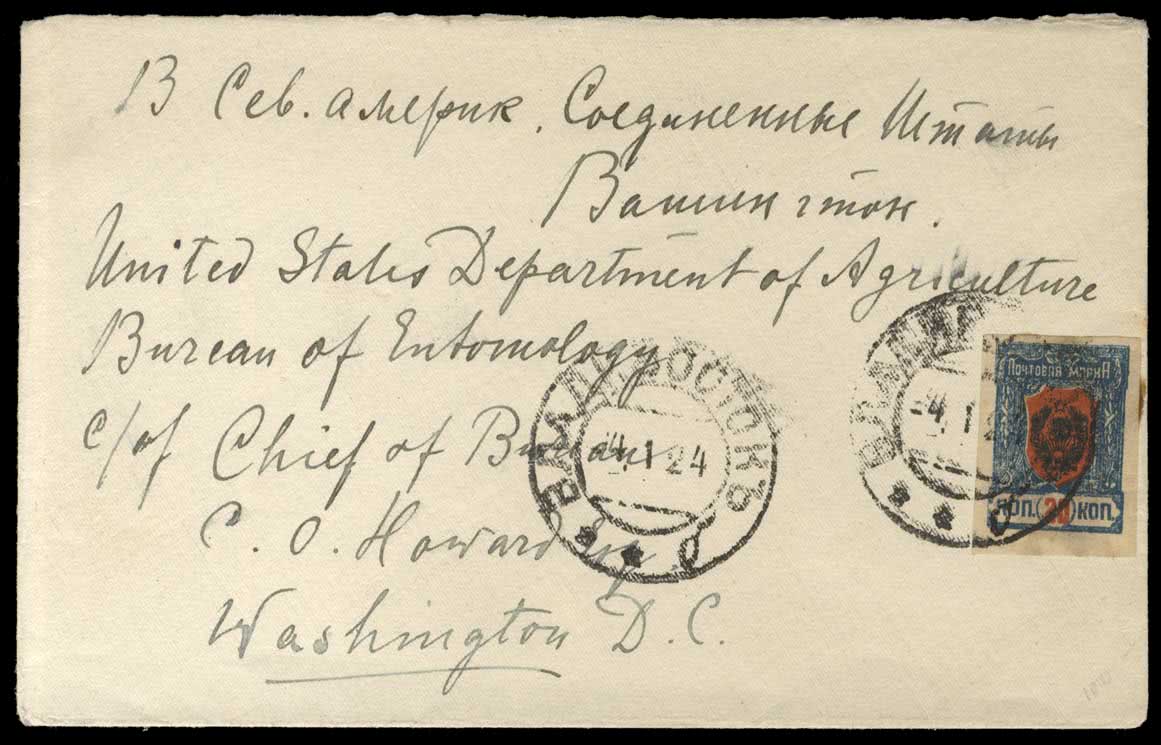 В Сев. америк. Соединенные Штаты
Вашингтон.
United States Department of Agriculture
Bureau of Entomology
c/of Chief of Bureau
C. O. Howard Esq
Washington D.C.
ВЛАДИВОСТОКЪ
4.1 24
* * б
ВЛАДИВ
-4.1 2
* * б
ПОЧТОВАЯ МАРКА
КОП.(20)КОП.